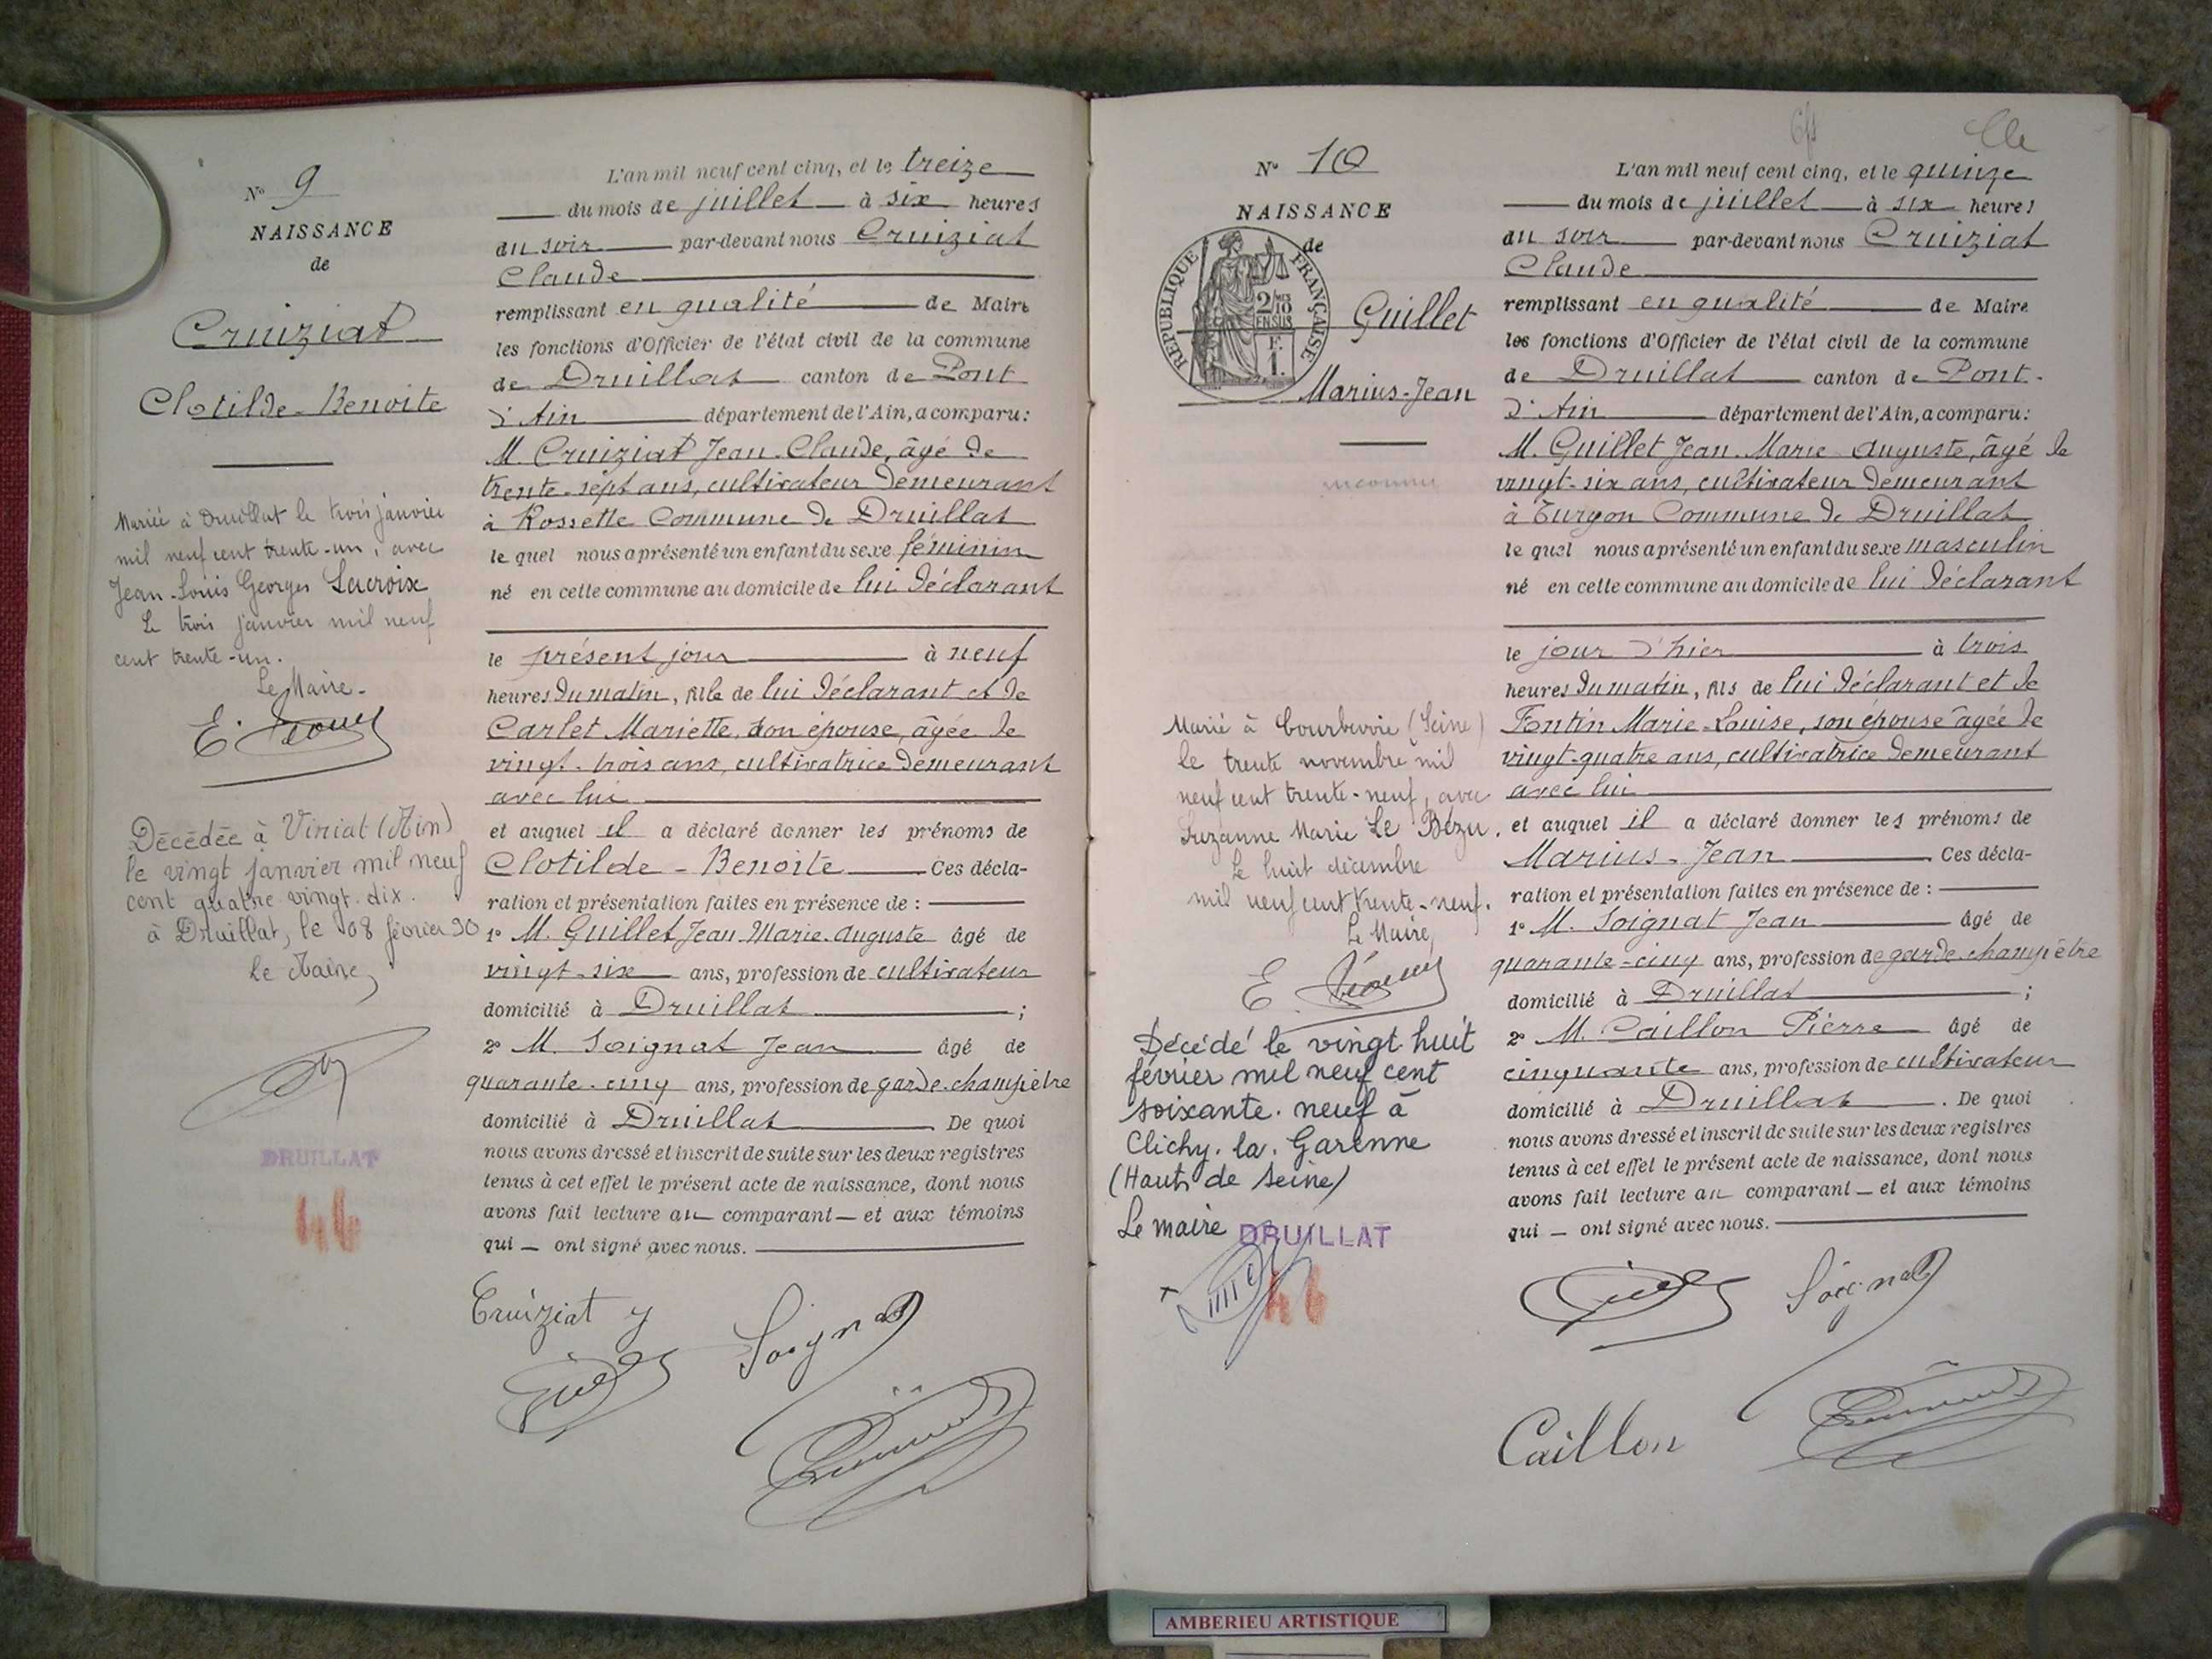 N° 9
NAISSANCE
de
Cruiziat
Clotilde-Benoite
Mariée à Druillat le trois janvier
mil neuf cent trente-un, avec
Jean-Louis Georges Lacroix
Le trois janvier mil neuf
cent trente-un.
Le Maire.
Décédée à Viriat (Ain)
le vingt janvier mil neuf
cent quatre vingt. dix.
à Druillat, le 08 février 90
le Maire,
DRUILLAT
46
L'an mil neuf cent cinq, et le treize
du mois de juillet à six heures
du soir par-devant nous Cruiziat
Claude
remplissant en qualité de Maire
les fonctions d'Officier de l'état civil de la commune
de Druillat canton de Pont
d'Ain département de l'Ain, a comparu:
M. Cruiziat Jean-Claude, âgé de
trente-sept ans, cultivateur demeurant
à Rossette Commune de Druillat
le quel nous a présenté un enfant du sexe féminin
né en cette commune au domicile de lui déclarant
le présent jour à neuf
heures du matin, fille de lui déclarant et de
Carlet Mariette, son épouse, âgée de
vingt-trois ans, cultivatrice demeurant
avec lui
et auquel il a déclaré donner les prénoms de
Clotilde - Benoite Ces décla-
ration et présentation faites en présence de :
1° M. Guillet Jean-Marie-Auguste âgé de
vingt-six ans, profession de cultivateur
domicilié à Druillat ;
2° M. Soignat Jean âgé de
quarante-cinq ans, profession de garde-champêtre
domicilié à Druillat. De quoi
nous avons dressé et inscrit de suite sur les deux registres
tenus à cet effet le présent acte de naissance, dont nous
avons fait lecture au comparant — et aux témoins
qui — ont signé avec nous.
Cruiziat
Soignat
N° 10
NAISSANCE
de
REPUBLIQUE FRANÇAISE
2/10
EN SUS
F.
1.
Guillet
Marius-Jean
inconnu
Marié à Courbevoie (Seine)
le trente novembre mil
neuf cent trente-neuf, avec
Suzanne Marie Le Bézu.
Le huit décembre
mil neuf cent trente-neuf.
Le Maire,
Décédé le vingt huit
février mil neuf cent
soixante. neuf à
Clichy. la. Garenne
(Hauts de Seine)
Le maire DRUILLAT
46
L'an mil neuf cent cinq, et le quinze
du mois de juillet à six heures
du soir par-devant nous Cruiziat
Claude
remplissant en qualité de Maire
les fonctions d'Officier de l'état civil de la commune
de Druillat canton de Pont-
d'Ain département de l'Ain, a comparu:
M. Guillet Jean-Marie-Auguste, âgé de
vingt-six ans, cultivateur demeurant
à Turgon Commune de Druillat
le quel nous a présenté un enfant du sexe masculin
né en cette commune au domicile de lui déclarant
le jour d'hier à trois
heures du matin, fils de lui déclarant et de
Fontin Marie-Louise, son épouse âgée de
vingt-quatre ans, cultivatrice demeurant
avec lui
et auquel il a déclaré donner les prénoms de
Marius-Jean. Ces décla-
ration et présentation faites en présence de :
1° M. Soignat Jean âgé de
quarante-cinq ans, profession de garde-champêtre
domicilié à Druillat ;
2° M. Caillon Pierre âgé de
cinquante ans, profession de cultivateur
domicilié à Druillat. De quoi
nous avons dressé et inscrit de suite sur les deux registres
tenus à cet effet le présent acte de naissance, dont nous
avons fait lecture au comparant — et aux témoins
qui — ont signé avec nous.
Soignat
Caillon
AMBERIEU ARTISTIQUE